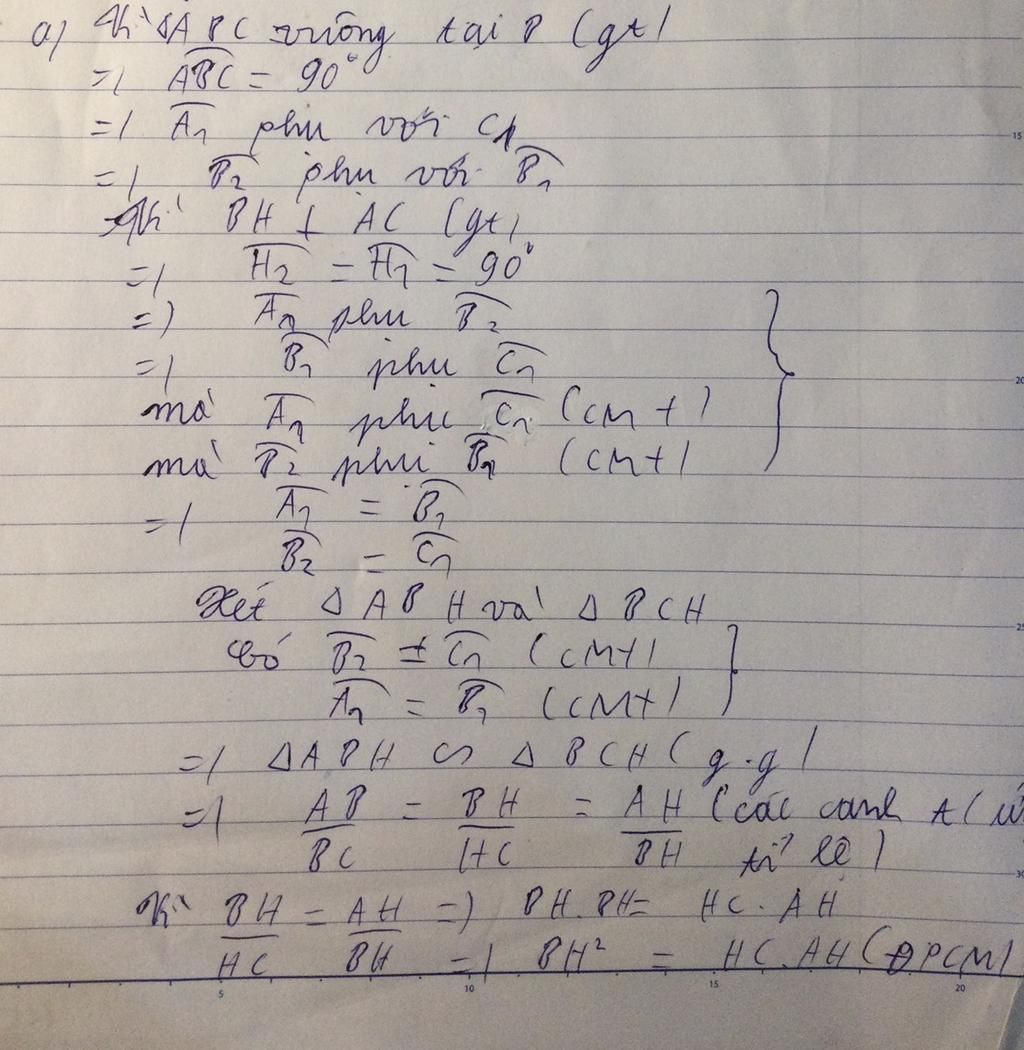 a) Vì ΔABC vuông tại B (gt)
=> \widehat{ABC} = 90°
=> \widehat{A_1} phụ với C_1
=> \widehat{B_2} phụ với \widehat{B_1}
Vì BH ⊥ AC (gt)
=> \widehat{H_2} = \widehat{H_1} = 90°
=> \widehat{A_1} phụ \widehat{B_2}
=> \widehat{B_1} phụ \widehat{C_1}
mà \widehat{A_1} phụ \widehat{C_1} (CMt)
mà \widehat{B_2} phụ \widehat{B_1} (CMt)
=> \widehat{A_1} = \widehat{B_1}
\widehat{B_2} = \widehat{C_1}
Xét ΔABH và ΔBCH
Có \widehat{B_2} = \widehat{C_1} (CMt)
\widehat{A_1} = \widehat{B_1} (CMt)
=> ΔABH ∽ ΔBCH (g.g)
=> AB/BC = BH/HC = AH/BH (các cạnh t(
tỉ lệ)
Vì BH/HC = AH/BH => BH.BH = HC.AH
=> BH² = HC.AH (ĐPCM)